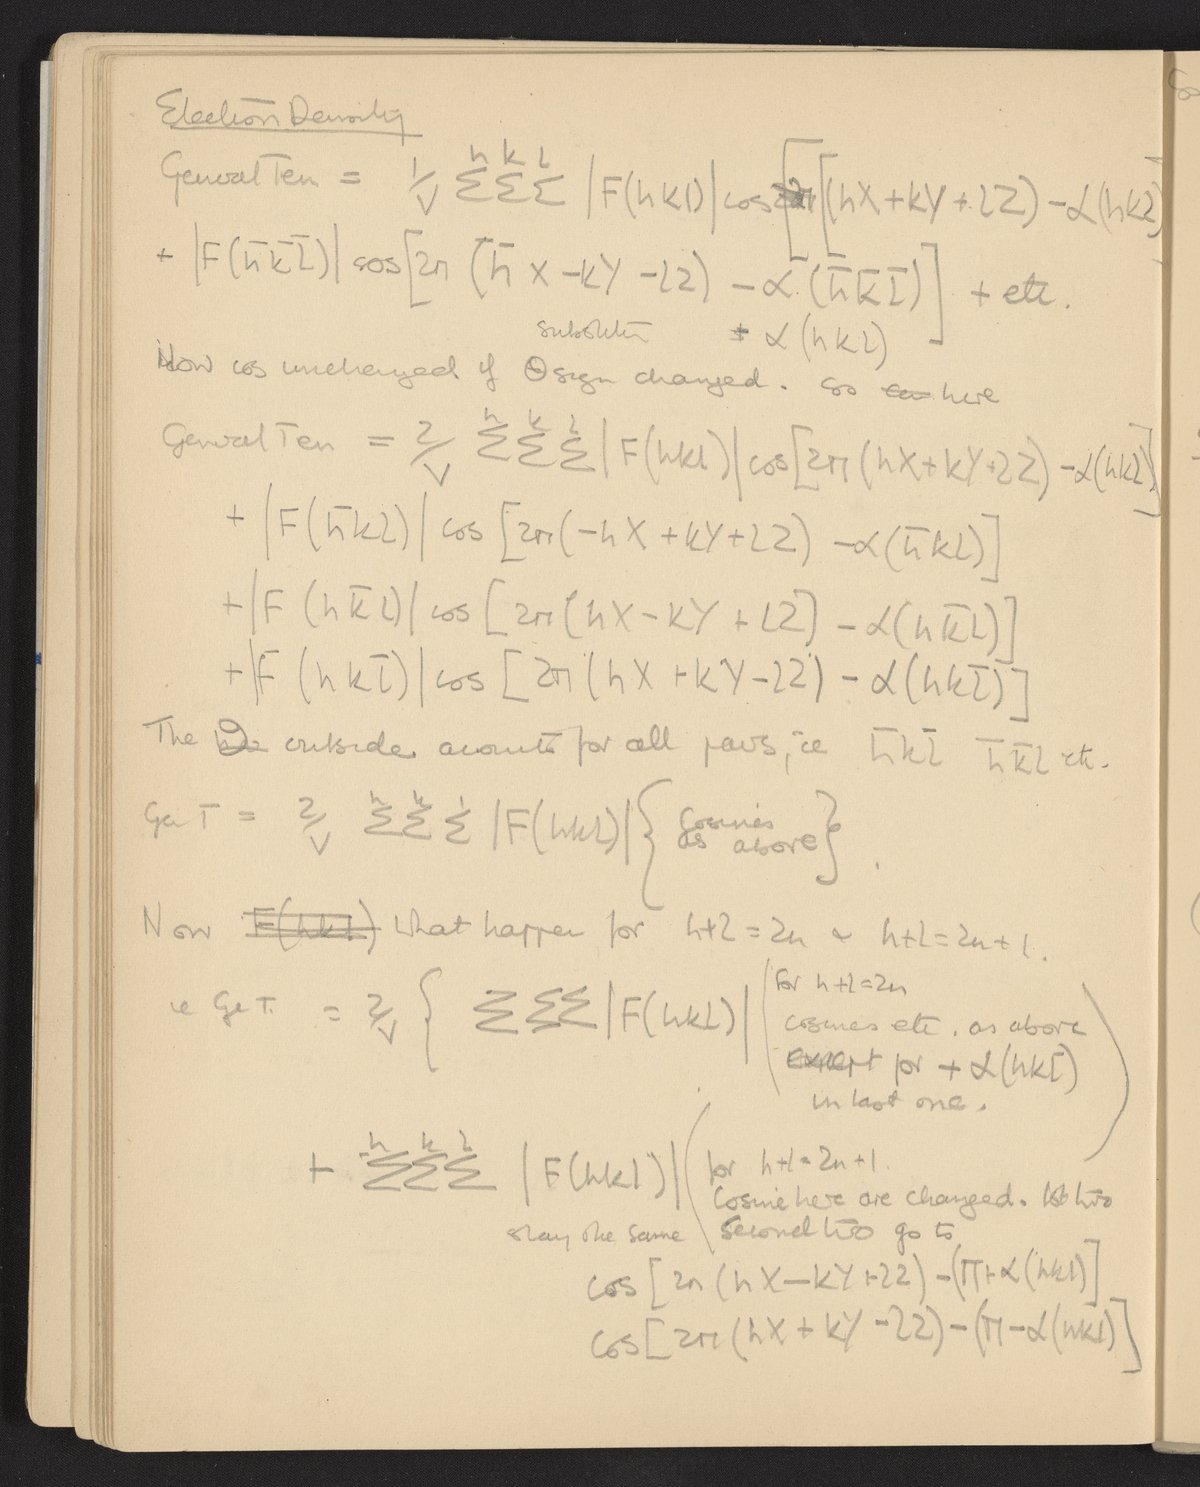 Electron Density
General Term = 1/V ΣΣΣ h k l |F(hkl)| cos [2π [(hX+kY+lZ) - α(hkl)
+ |F(h̄k̄l̄)| cos [2π (h̄X - kY - lZ) - α(h̄k̄l̄)] + etc.
substitute + α(hkl)
Now cos unchanged if θ sign changed. So here
General Term = 2/V ΣΣΣ h k l |F(hkl)| cos[2π(hX+kY+lZ) - α(hkl)]
+ |F(h̄kl)| cos [2π(-hX+kY+lZ) - α(h̄kl)]
+ |F(hk̄l)| cos [2π(hX-kY+lZ) - α(hk̄l)]
+ |F(hkl̄)| cos [2π(hX+kY-lZ) - α(hkl̄)]
The 2 outside accounts for all pairs, ie h̄kl̄ h̄k̄l etc.
Gen T = 2/V ΣΣΣ h k l |F(hkl)| { Cosines as above } .
Now F(hkl) what happen for h+l=2n & h+l=2n+1.
ie Ge T. = 2/V { ΣΣΣ |F(hkl)| (for h+l=2n
cosines etc. as above
except for + α(hkl̄)
in last one. )
+ ΣΣΣ h k l |F(hkl)| (for h+l=2n+1.
Cosine here are changed. 1st two
stay the same second two go to
cos [2π(hX-kY+lZ) - (π+α(hkl)]
cos [2π(hX+kY-lZ) - (π-α(hkl)]